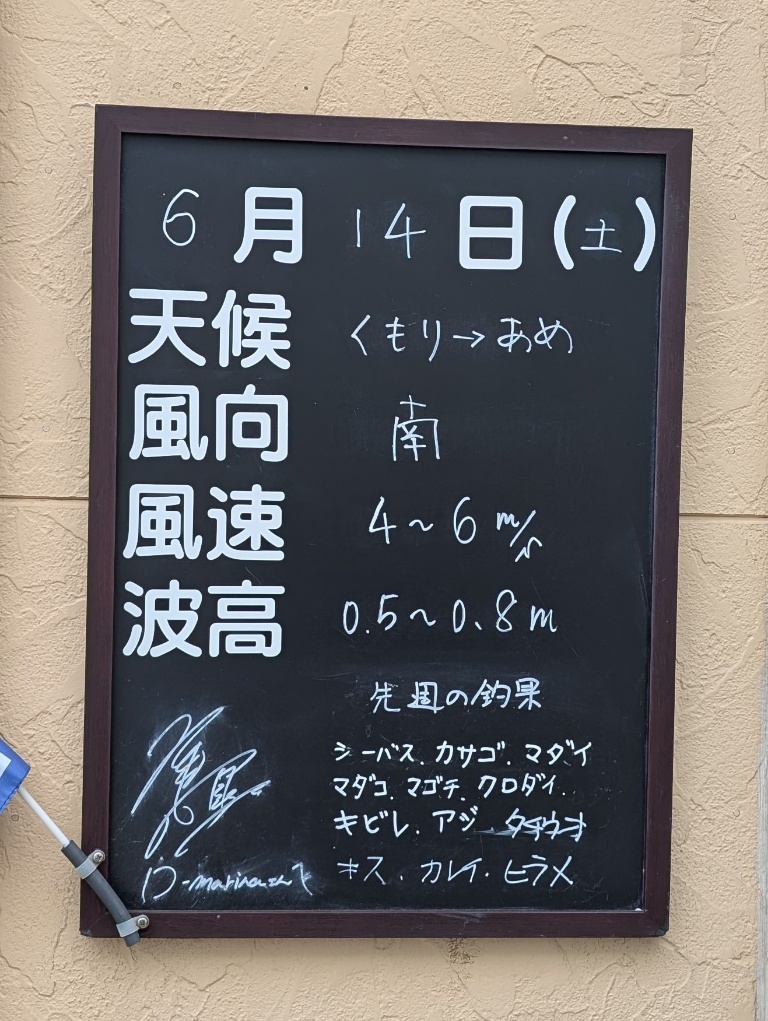 6月14日(土)
天候 くもり→あめ
風向 南
風速 4～6 m/s
波高 0.5～0.8m
先週の釣果
シーバス、カサゴ、マダイ
マダコ、マゴチ、クロダイ、
キビレ、アジ
キス、カレイ、ヒラメ
D-marinaさんへ